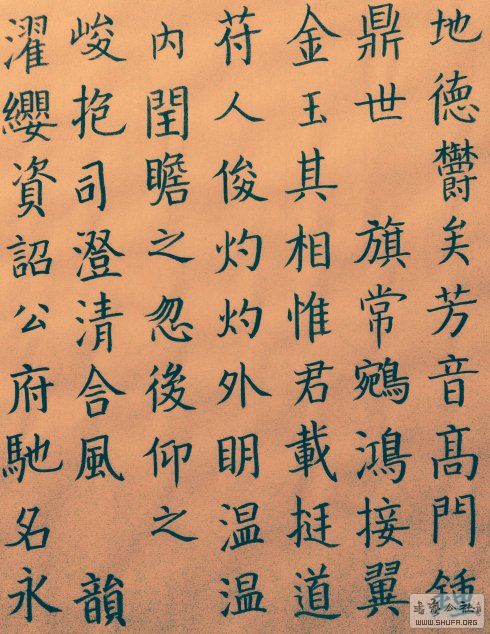 地德欝矣芳音高門鍾
鼎世 旗常鵷鴻接翼
金玉其相惟君載挺道
苻人俊灼灼外明温温
内閏瞻之忽後仰之
峻抱司澄清合風 韻
濯纓資詔公府馳名永
WWW.SHUFA.ORG